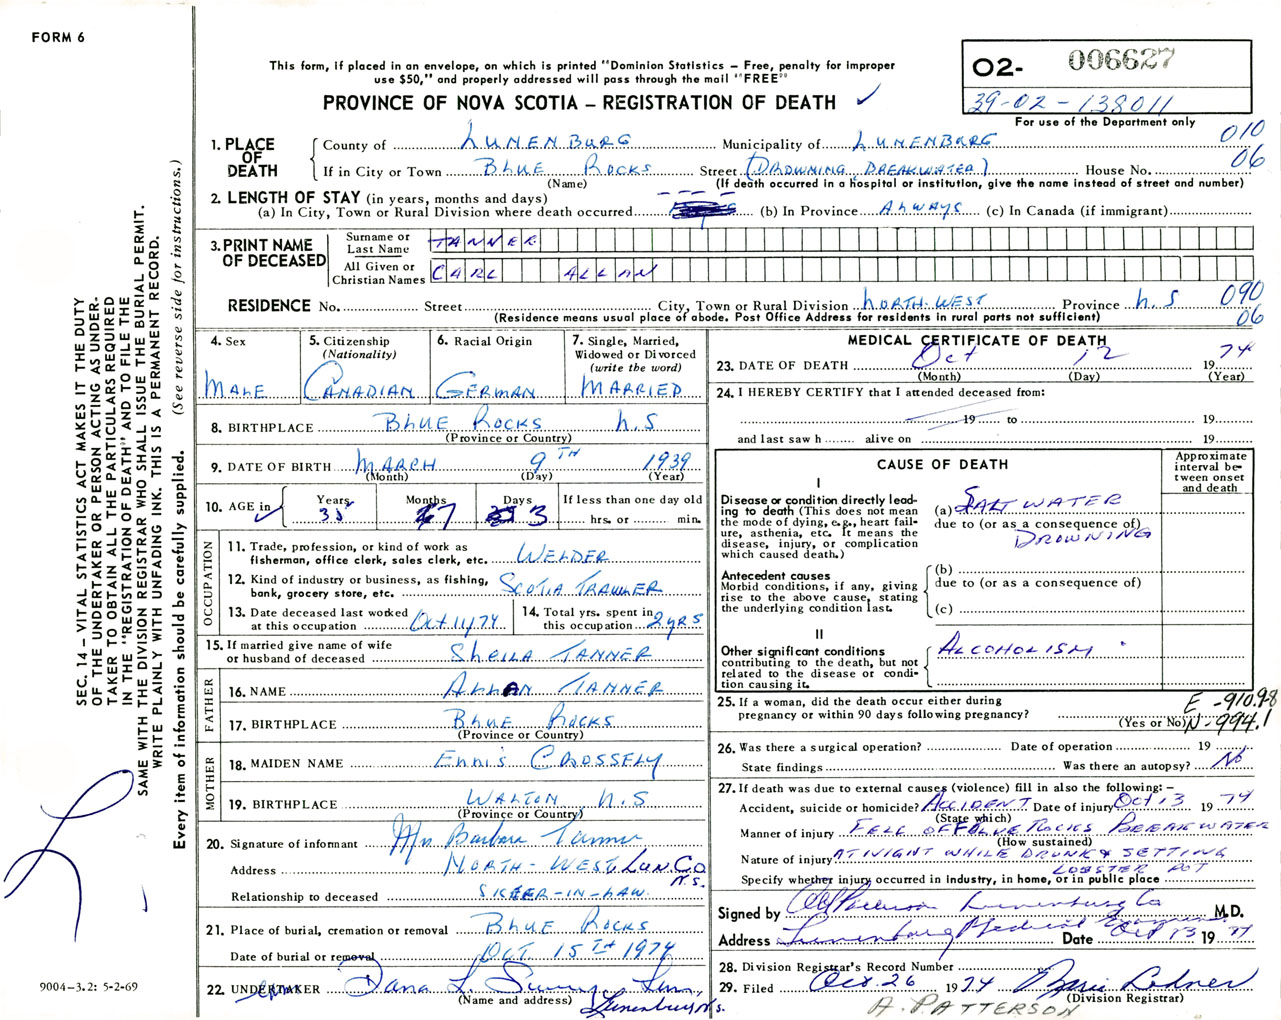 FORM 6
This form, if placed in an envelope, on which is printed "Dominion Statistics – Free, penalty for improper
use $50," and properly addressed will pass through the mail "FREE"
PROVINCE OF NOVA SCOTIA – REGISTRATION OF DEATH ✓
02- 006627
39-02-138011
For use of the Department only
SEC. 14 – VITAL STATISTICS ACT MAKES IT THE DUTY
OF THE UNDERTAKER OR PERSON ACTING AS UNDER-
TAKER TO OBTAIN ALL THE PARTICULARS REQUIRED
IN THE "REGISTRATION OF DEATH" AND TO FILE THE
SAME WITH THE DIVISION REGISTRAR WHO SHALL ISSUE THE BURIAL PERMIT.
WRITE PLAINLY WITH UNFADING INK. THIS IS A PERMANENT RECORD.
Every item of information should be carefully supplied. (See reverse side for instructions.)
1. PLACE OF DEATH
County of LUNENBURG Municipality of LUNENBURG 010
If in City or Town BLUE ROCKS Street (DROWNING, BREAKWATER) House No. 06
(Name) (If death occurred in a hospital or institution, give the name instead of street and number)
2. LENGTH OF STAY (in years, months and days)
(a) In City, Town or Rural Division where death occurred (b) In Province ALWAYS (c) In Canada (if immigrant)
3. PRINT NAME OF DECEASED
Surname or Last Name TANNER
All Given or Christian Names CARL ALLAN
RESIDENCE No. Street City, Town or Rural Division NORTH-WEST Province N.S 090
(Residence means usual place of abode. Post Office Address for residents in rural parts not sufficient) 06
4. Sex MALE
5. Citizenship (Nationality) CANADIAN
6. Racial Origin GERMAN
7. Single, Married, Widowed or Divorced (write the word) MARRIED
8. BIRTHPLACE BLUE ROCKS N.S
(Province or Country)
9. DATE OF BIRTH MARCH 9TH 1939
(Month) (Day) (Year)
10. AGE in ✓ Years 35 Months 7 Days 3 If less than one day old
hrs. or min.
OCCUPATION
11. Trade, profession, or kind of work as
fisherman, office clerk, sales clerk, etc. WELDER
12. Kind of industry or business, as fishing,
bank, grocery store, etc. SCOTIA TRAWLER
13. Date deceased last worked
at this occupation Oct 11/74
14. Total yrs. spent in
this occupation 2 yrs
15. If married give name of wife
or husband of deceased SHEILA TANNER
FATHER
16. NAME ALLAN TANNER
17. BIRTHPLACE BLUE ROCKS
(Province or Country)
MOTHER
18. MAIDEN NAME ENNIS CROSSELY
19. BIRTHPLACE WALTON, N.S
(Province or Country)
20. Signature of informant Mrs Barbara Tanner
Address NORTH-WEST, Lun. Co
N.S.
Relationship to deceased SISTER-IN-LAW.
21. Place of burial, cremation or removal BLUE ROCKS
Date of burial or removal OCT. 15TH 1974
22. UNDERTAKER Dana L.
(Name and address)
Lunenburg N.S.
9004-3.2: 5-2-69
MEDICAL CERTIFICATE OF DEATH
23. DATE OF DEATH Oct 12 1974
(Month) (Day) (Year)
24. I HEREBY CERTIFY that I attended deceased from:
19 to 19
and last saw h alive on 19
CAUSE OF DEATH
Approximate interval between onset and death
I
Disease or condition directly lead-
ing to death (This does not
mean the mode of dying, e.g., heart fail-
ure, asthenia, etc. It means the
disease, injury, or complication
which caused death.)
(a) SALT WATER
due to (or as a consequence of)
DROWNING
Antecedent causes
Morbid conditions, if any, giving
rise to the above cause, stating
the underlying condition last.
(b)
due to (or as a consequence of)
(c)
II
Other significant conditions
contributing to the death, but not
related to the disease or condi-
tion causing it.
ALCOHOLISM
25. If a woman, did the death occur either during
pregnancy or within 90 days following pregnancy?
(Yes or No)
E-910.98
N-994.1
26. Was there a surgical operation? Date of operation 19
State findings Was there an autopsy? No
27. If death was due to external causes (violence) fill in also the following:–
Accident, suicide or homicide? ACCIDENT Date of injury Oct 13 1974
(State which)
Manner of injury FELL OFF BLUE ROCKS BREAKWATER
(How sustained)
Nature of injury AT NIGHT WHILE DRUNK & SETTING
LOBSTER POT
Specify whether injury occurred in industry, in home, or in public place
Signed by Lunenburg Co M.D.
Address Lunenburg Medical Examiner Date Oct 13 1977
28. Division Registrar's Record Number
29. Filed Oct. 26 1974
(Division Registrar)
A. PATTERSON